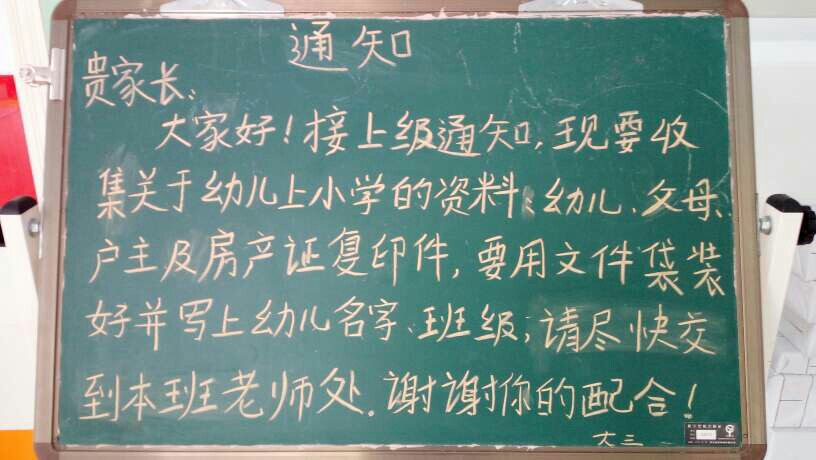 通知
贵家长:
大家好!接上级通知,现要收
集关于幼儿上小学的资料:幼儿、父母、
户主及房产证复印件,要用文件袋装
好并写上幼儿名字、班级,请尽快交
到本班老师处.谢谢你的配合!
大三